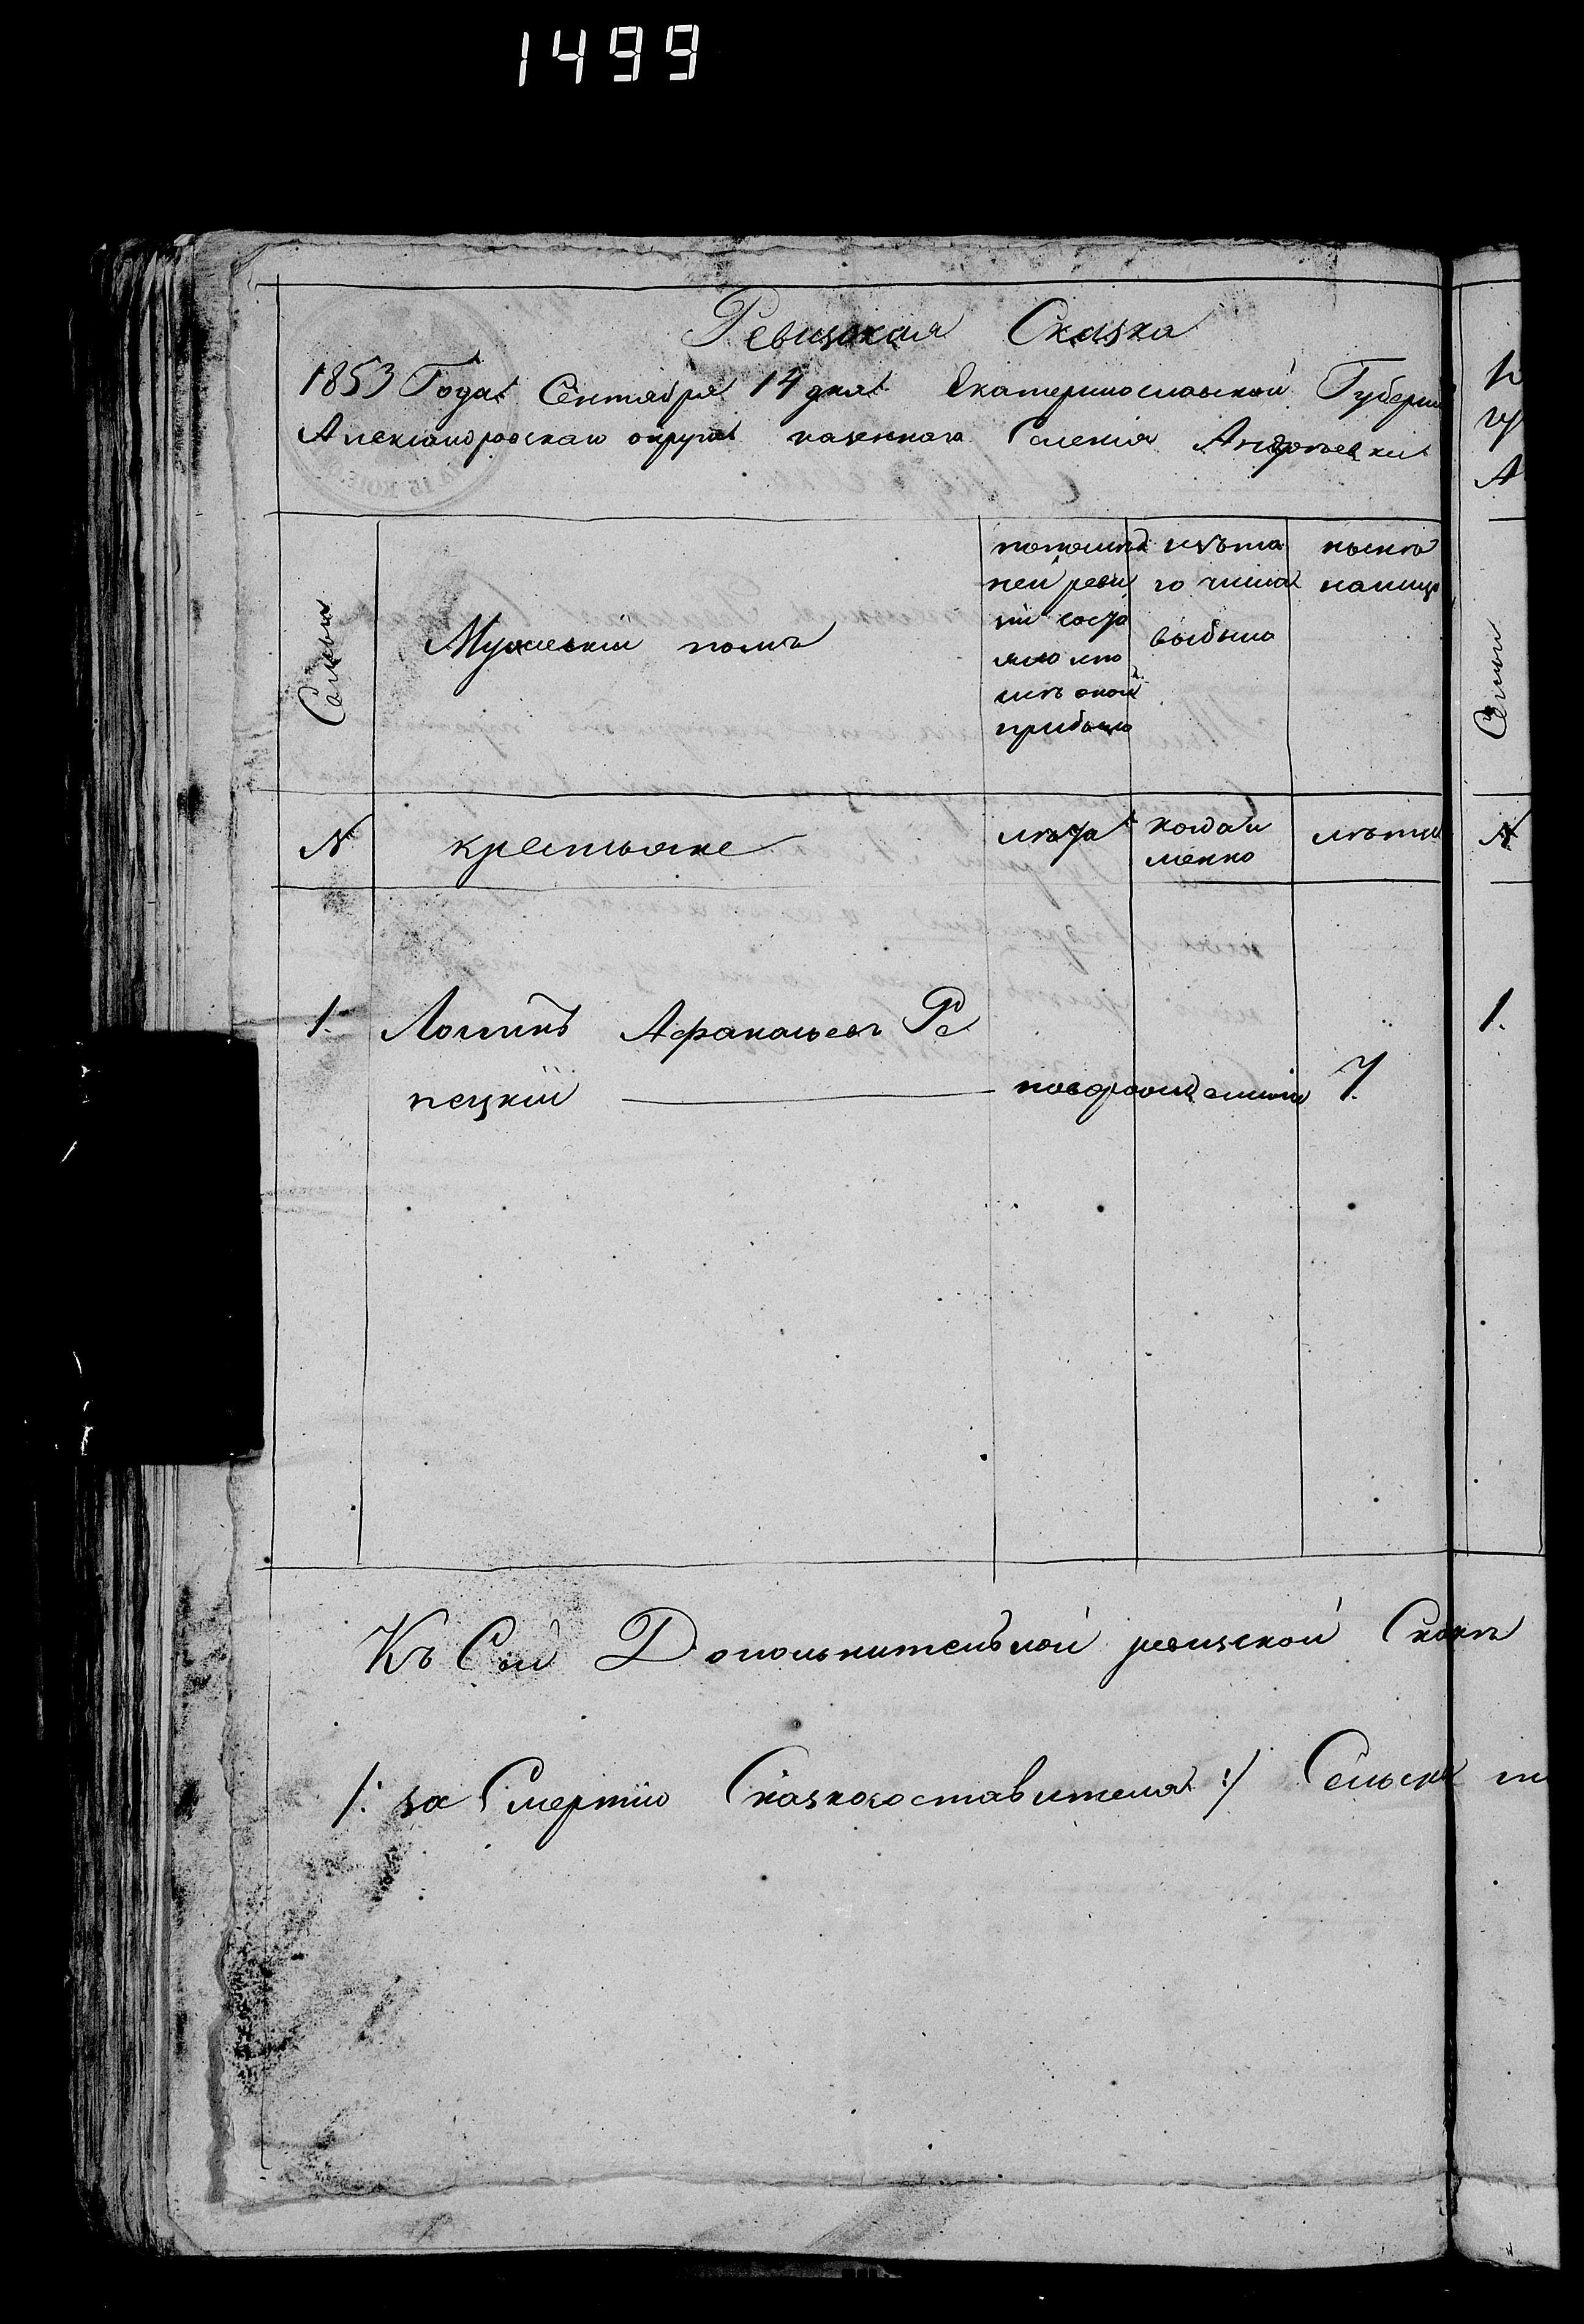 1499
Ревизская Сказка
1853 Года Сентября 14 дня Екатеринославской Губернии
Александровскаго округа казеннаго Селенія Андреевки
Семьи
Мужескій полъ
попослѣд
ней реви
зіи состо
яло или
послѣ оной
прибыло
изъ то
го числа
выбыло
нынѣ
налицо
N
крестьяне
лѣта
когда и
менно
лѣта
1.
Логинъ Афанасьевъ Ре
пецкій
новорожденный
7.
Къ Сей Дополнительной ревизской Сказкѣ
/: за Смертію Сказкосоставителя :/ Сельск
Семьи
N
1.